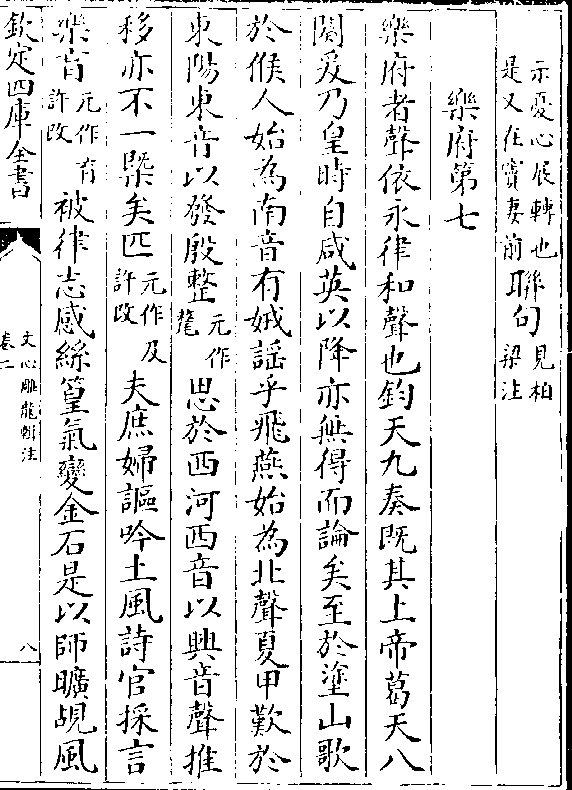 示憂心展轉也
是又在竇妻前
聯句
見柏
梁注
樂府第七
樂府者聲依永律和聲也鈞天九奏既其上帝葛天八
闋爰乃皇時自咸英以降亦無得而論矣至於塗山歌
於候人始為南音有娀謡乎飛燕始為北聲夏甲歎於
東陽東音以發殷整
元作
氂
思於西河西音以興音聲推
移亦不一槩矣匹
元作及
許改
夫庶婦謳吟土風詩官採言
樂盲
元作育
許改
被律志感絲篁氣變金石是以師曠覘風
欽定四庫全書
文心雕龍輯注
卷二
八